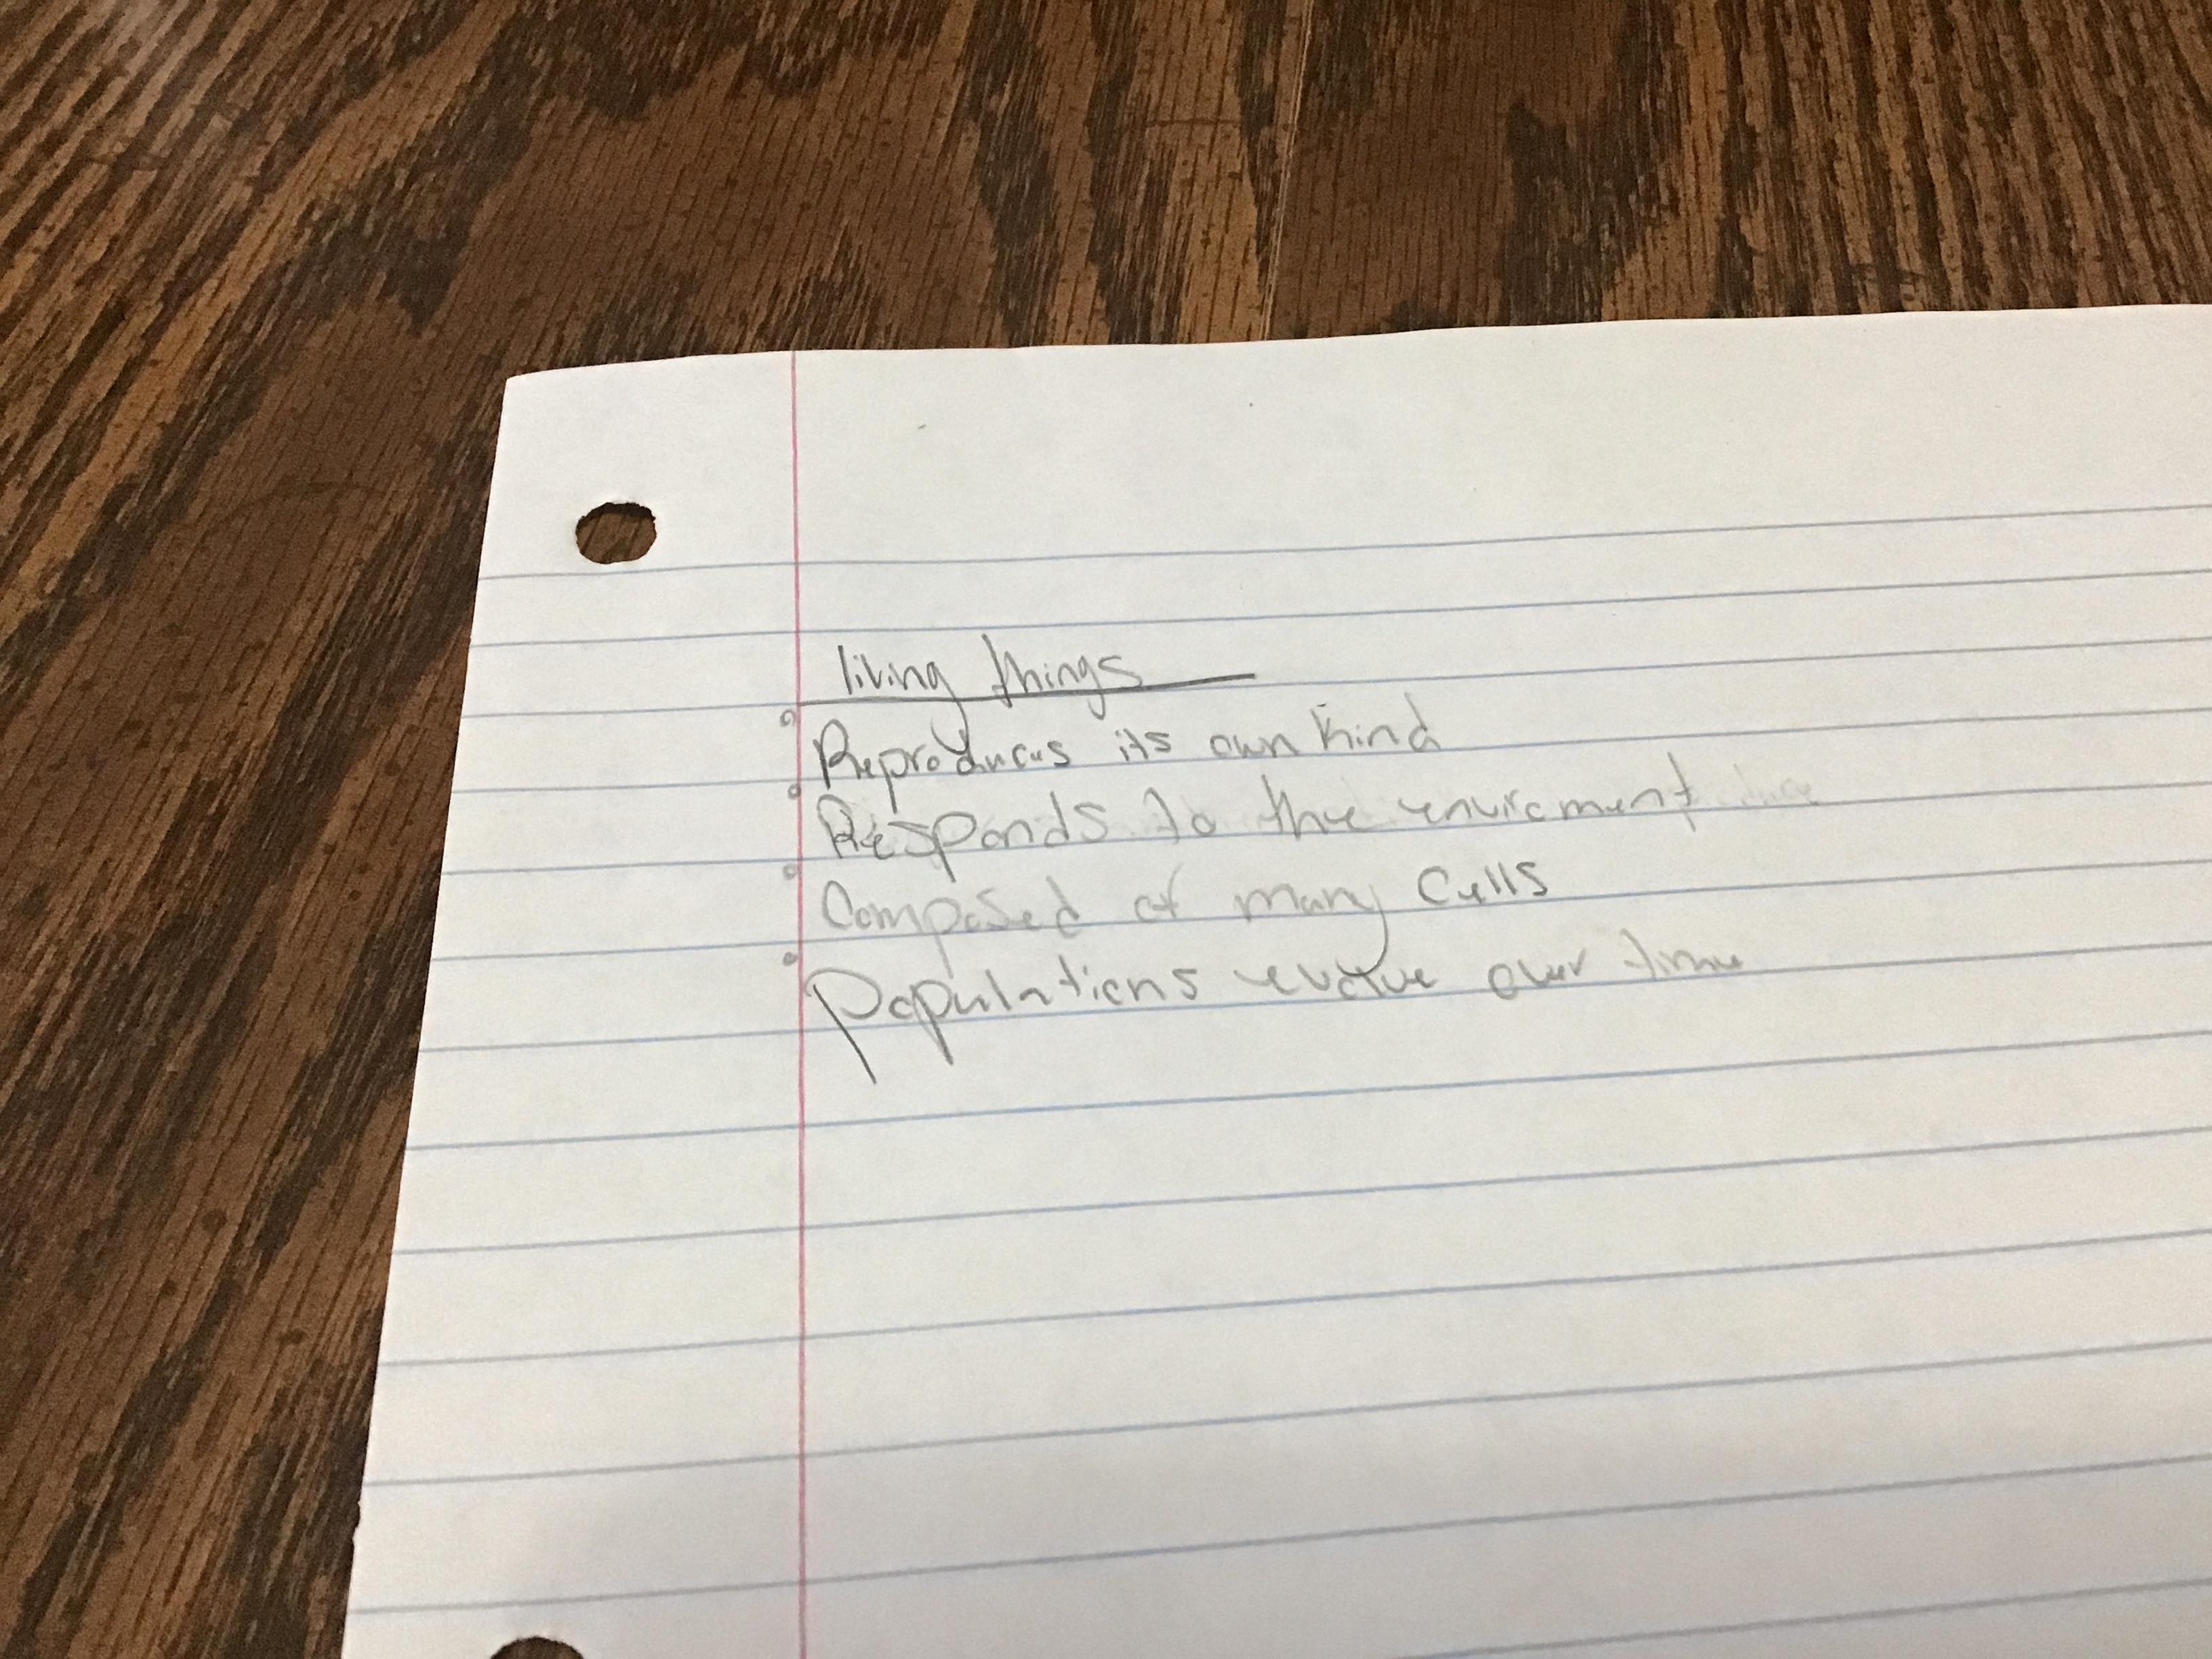 living things
Reproduces its own kind
Responds to the enviroment
Composed of many Cells
Populations evolve over time